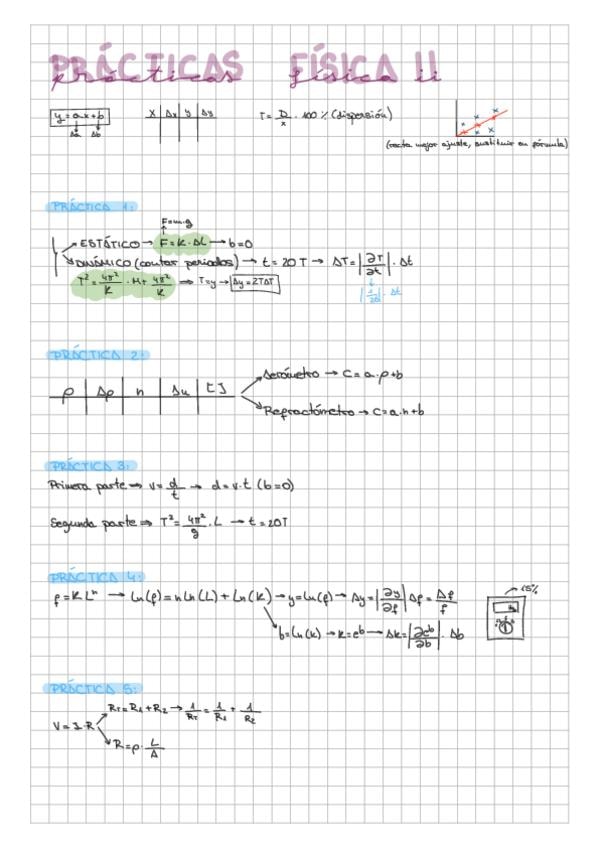 PRÁCTICAS FÍSICA II
prácticas física ii
y = ax + b
Δa Δb
x | Δx | y | Δy
T = D/x · 100 % (dispersión)
(recta mejor ajuste, sustituir en fórmula)
PRÁCTICA 1:
F = m·g
ESTÁTICO → F = K · ΔL → b = 0
DINÁMICO (contar periodos) → t = 20T → ΔT = |∂T/∂t| · Δt
T² = 4π²/K · M + 4π²/K ⇒ T = y → Δy = 2TΔT
|1/20| · Δt
PRÁCTICA 2:
ρ | Δρ | n | Δn | [ ]
Aerómetro → C = a · ρ + b
Refractómetro → C = a · n + b
PRÁCTICA 3:
Primera parte ⇒ v = d/t → d = v · t (b = 0)
Segunda parte ⇒ T² = 4π²/g · L → t = 20T
PRÁCTICA 4:
f = K Lⁿ → Ln(f) = n Ln(L) + Ln(K) → y = Ln(f) → Δy = |∂y/∂f| Δf = Δf/f
b = Ln(K) → K = eᵇ → ΔK = |∂eᵇ/∂b| · Δb
PRÁCTICA 5:
RT = R1 + R2 → 1/RT = 1/R1 + 1/R2
V = I · R
R = ρ · L/A